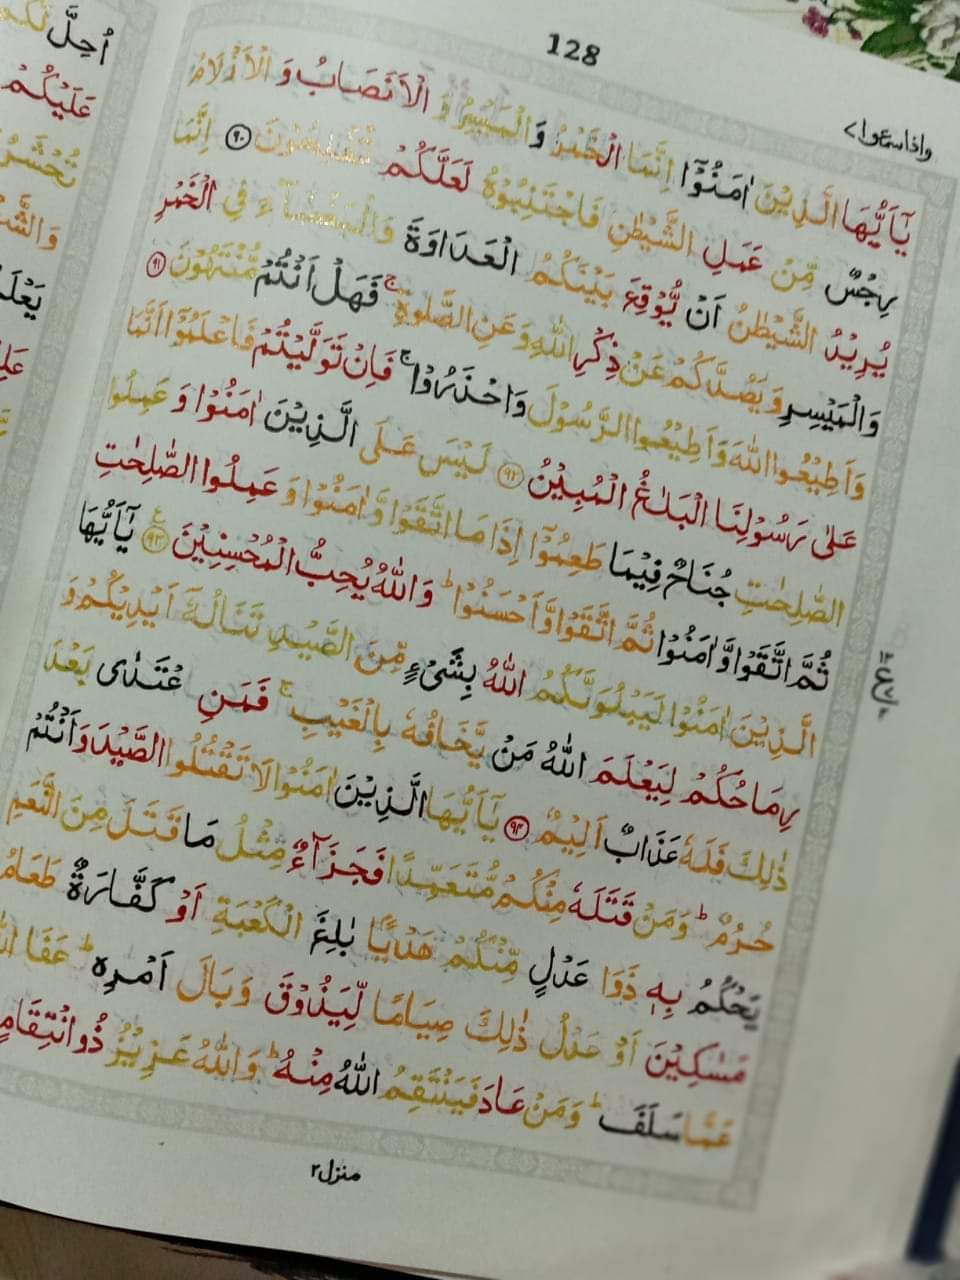 128
واذاسمعوا ٧
يٰۤاَيُّهَا الَّذِيْنَ اٰمَنُوْۤا اِنَّمَا الْخَمْرُ وَالْمَيْسِرُ وَ الْاَنْصَابُ وَ الْاَزْلَامُ
رِجْسٌ مِّنْ عَمَلِ الشَّيْطٰنِ فَاجْتَنِبُوْهُ لَعَلَّكُمْ تُفْلِحُوْنَ ۹۰ اِنَّمَا
يُرِيْدُ الشَّيْطٰنُ اَنْ يُّوْقِعَ بَيْنَكُمُ الْعَدَاوَةَ وَالْبَغْضَآءَ فِي الْخَمْرِ
وَالْمَيْسِرِ وَيَصُدَّكُمْ عَنْ ذِكْرِ اللّٰهِ وَعَنِ الصَّلٰوةِ ۚ فَهَلْ اَنْتُمْ مُّنْتَهُوْنَ ۹۱
وَاَطِيْعُوا اللّٰهَ وَاَطِيْعُوا الرَّسُوْلَ وَاحْذَرُوْا ۚ فَاِنْ تَوَلَّيْتُمْ فَاعْلَمُوْۤا اَنَّمَا
عَلٰى رَسُوْلِنَا الْبَلٰغُ الْمُبِيْنُ ۹۲ لَيْسَ عَلَى الَّذِيْنَ اٰمَنُوْا وَ عَمِلُوا
الصّٰلِحٰتِ جُنَاحٌ فِيْمَا طَعِمُوْۤا اِذَا مَا اتَّقَوْا وَّاٰمَنُوْا وَ عَمِلُوا الصّٰلِحٰتِ
ثُمَّ اتَّقَوْا وَّاٰمَنُوْا ثُمَّ اتَّقَوْا وَّاَحْسَنُوْا ؕ وَاللّٰهُ يُحِبُّ الْمُحْسِنِيْنَ ۹۳ يٰۤاَيُّهَا
الَّذِيْنَ اٰمَنُوْا لَيَبْلُوَنَّكُمُ اللّٰهُ بِشَيْءٍ مِّنَ الصَّيْدِ تَنَالُهٗۤ اَيْدِيْكُمْ وَ
رِمَاحُكُمْ لِيَعْلَمَ اللّٰهُ مَنْ يَّخَافُهٗ بِالْغَيْبِ ۚ فَمَنِ عْتَدٰى بَعْدَ
ذٰلِكَ فَلَهٗ عَذَابٌ اَلِيْمٌ ۹۴ يٰۤاَيُّهَا الَّذِيْنَ اٰمَنُوْا لَا تَقْتُلُوا الصَّيْدَ وَاَنْتُمْ
حُرُمٌ ؕ وَمَنْ قَتَلَهٗ مِنْكُمْ مُّتَعَمِّدًا فَجَزَآءٌ مِّثْلُ مَا قَتَلَ مِنَ النَّعَمِ
يَحْكُمُ بِهٖ ذَوَا عَدْلٍ مِّنْكُمْ هَدْيًا بٰلِغَ الْكَعْبَةِ اَوْ كَفَّارَةٌ طَعَامُ
مَسٰكِيْنَ اَوْ عَدْلُ ذٰلِكَ صِيَامًا لِّيَذُوْقَ وَبَالَ اَمْرِهٖ ؕ عَفَا
عَمَّا سَلَفَ ؕ وَمَنْ عَادَ فَيَنْتَقِمُ اللّٰهُ مِنْهُ ؕ وَاللّٰهُ عَزِيْزٌ ذُو انْتِقَامٍ
منزل٢
اُحِلَّ لَكُمْ
عَلَيْكُمْ